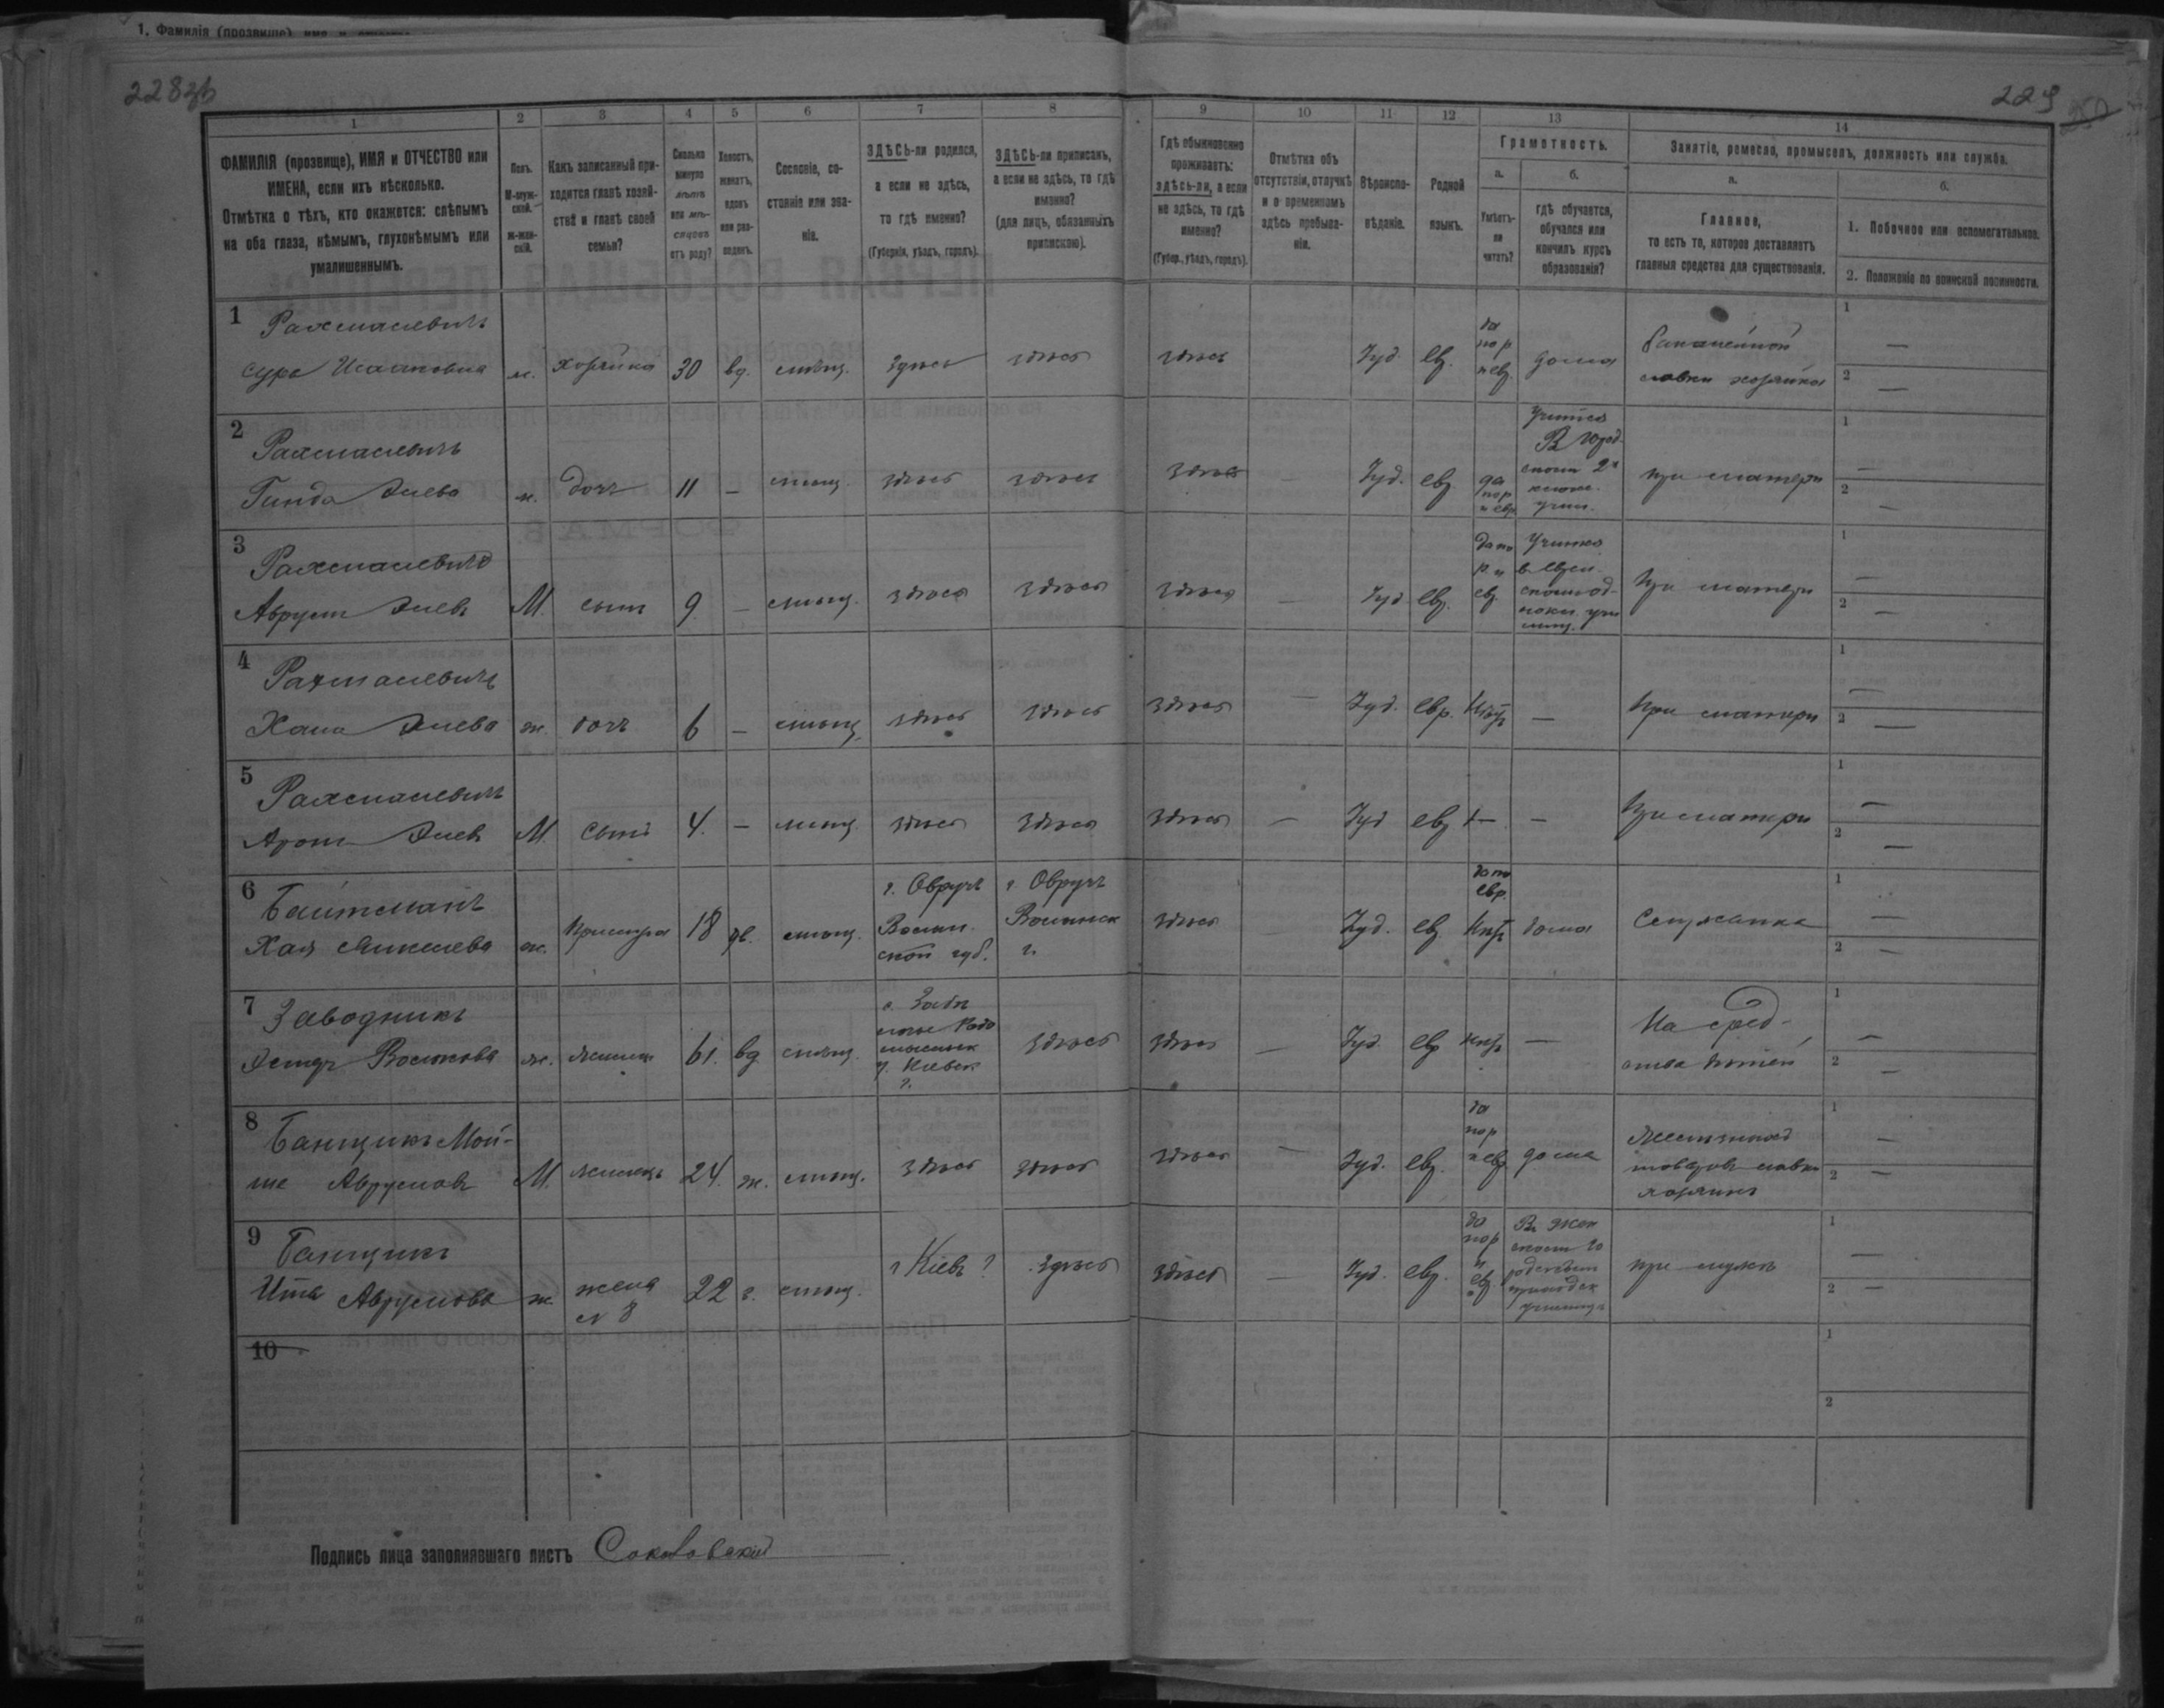 1. Фамилія (прозвище), имя и отчество
228зб
229
1
2
3
4
5
6
7
8
9
10
11
12
13
14
ФАМИЛІЯ (прозвище), ИМЯ и ОТЧЕСТВО или
ИМЕНА, если ихъ нѣсколько.
Отмѣтка о тѣхъ, кто окажется: слѣпымъ
на оба глаза, нѣмымъ, глухонѣмымъ или
умалишеннымъ.
Полъ.
М-муж-
ской.
ж-жен-
скій.
Какъ записанный при-
ходится главѣ хозяй-
ства и главѣ своей
семьи?
Сколько
минуло
лѣтъ
или мѣ-
сяцевъ
отъ роду?
Холостъ,
женатъ,
вдовъ
или раз-
веденъ.
Сословіе, со-
стояніе или зва-
ніе.
ЗДѢСЬ-ли родился,
а если не здѣсь,
то гдѣ именно?
(Губернія, уѣздъ, городъ).
ЗДѢСЬ-ли приписанъ,
а если не здѣсь, то гдѣ
именно?
(для лицъ, обязанныхъ
припискою).
Гдѣ обыкновенно
проживаетъ:
здѣсь-ли, а если
не здѣсь, то гдѣ
именно?
(Губер., уѣздъ, городъ).
Отмѣтка объ
отсутствіи, отлучкѣ
и о временномъ
здѣсь пребыва-
ніи.
Вѣроиспо-
вѣданіе.
Родной
языкъ.
Грамотность.
а.
Умѣетъ-
ли
читать?
б.
гдѣ обучается,
обучался или
кончилъ курсъ
образованія?
Занятіе, ремесло, промыселъ, должность или служба.
а.
Главное,
то есть то, которое доставляетъ
главныя средства для существованія.
б.
1. Побочное или вспомогательное.
2. Положеніе по воинской повинности.
1 Рахмалевичъ
Сура Исааковна
хозяйка 30 вд. мѣщ. здѣсь здѣсь здѣсь Іуд. евр.
да
по р
и евр.
дома
Бакалейной
лавки хозяйка
1 —
2 —
2 Рахмалевичъ
Гинда Элева
дочь 11 — мѣщ. здѣсь здѣсь здѣсь — Іуд. евр.
да
по р
и евр.
Учится
В город-
ском 2х
класс.
учил.
при матери
1 —
2 —
3 Рахмалевичъ
Аврум Элев
М. сын 9 — мѣщ. здѣсь здѣсь здѣсь — Іуд евр.
да по
р. и
евр.
Учится
в еврей-
ском од-
нокл. учи
лищ.
При матери
1 —
2 —
4 Рахмалевичъ
Хана Элева
ж. дочь 6 — мѣщ. здѣсь здѣсь здѣсь — Іуд. евр. Нѣтъ —
При матери
1 —
2 —
5 Рахмалевичъ
Арон Элев
М. сынъ 4. — мѣщ. здѣсь здѣсь здѣсь — Іуд евр — —
При матери
1 —
2 —
6 Байтманъ
Хая
ж. Прислуга 18 дѣ. мѣщ.
г. Овручъ
Волын-
ской губ.
г. Овручъ
Волынск
г.
здѣсь Іуд. евр
да по
евр.
дома
Служанка
1 —
2 —
7 Заводникъ
Эстер Волькова
ж. жилица 61. вд мѣщ.
у. Киевск
г.
здѣсь здѣсь — Іуд. евр нѣтъ —
На сред-
ства дѣтей
1 —
2 —
8 Банщикъ Мой-
ше Аврумов
М. жилецъ 24. ж. мѣщ. здѣсь здѣсь здѣсь — Іуд. евр.
да
по р
и евр
дома
товаров лавки
хозяинъ
1 —
2 —
9 Банщикъ
Ита Аврумова
ж.
жена
N 8
22 з. мѣщ. г Кіевъ здѣсь здѣсь — Іуд. евр.
да
по р
и
евр.
при мужѣ
1 —
2 —
10
1
2
Подпись лица заполнявшаго листъ Соколовскій